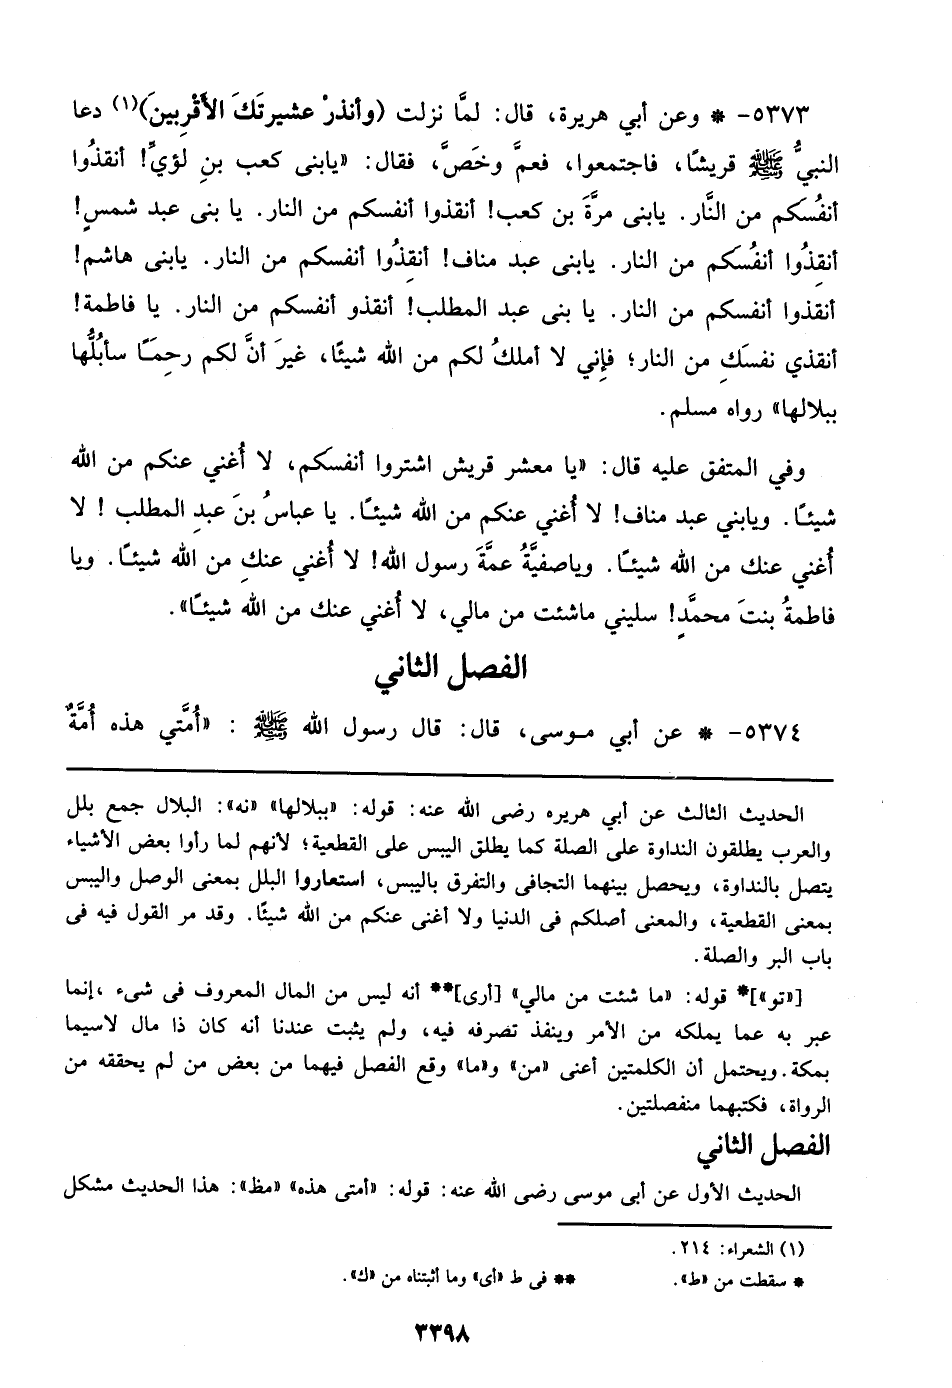 ٥٣٧٣- * وعن أبي هريرة، قال: لمَّا نزلت (وأنذرْ عشيرتَكَ الأَقْرِبينَ)(١) دعا
النبيُّ ﷺ قريشًا، فاجتمعوا، فعمَّ وخَصَّ، فقال: «يابنى كعب بنِ لؤيٍّ! أنقذُوا
أنفُسكم من النَّار. يابنى مرَّةَ بن كعب! أنقذوا أنفسكم من النار. يا بنى عبد شمسٍ!
أنقِذُوا أنفُسَكم من النار. يابنى عبد مناف! أنقِذُوا أنفسكم من النار. يابنى هاشم!
أنقذوا أنفسكم من النار. يا بنى عبد المطلب! أنقذو أنفسكم من النار. يا فاطمة!
أنقذي نفسَكِ من النار؛ فإِني لا أملكُ لكم من الله شيئًا، غيرَ أنَّ لكم رحِمًا سأبُلُّها
ببلالها» رواه مسلم.
وفي المتفق عليه قال: «يا معشر قريش اشتروا أنفسكم، لا أُغني عنكم من الله
شيئًا. ويابني عبد مناف! لا أُغني عنكم من الله شيئًا. يا عباسُ بنَ عبدِ المطلب ! لا
أُغني عنك من الله شيئًا. وياصفيَّةُ عمَّةَ رسول الله! لا أُغني عنكِ من الله شيئًا. ويا
فاطمةُ بنتَ محمَّدٍ! سليني ماشئت من مالي، لا أُغني عنك من الله شيئًا».
الفصل الثاني
٥٣٧٤- * عن أبي موسى، قال: قال رسول الله ﷺ : «أُمَّتي هذه أُمَّةٌ
الحديث الثالث عن أبي هريره رضى الله عنه: قوله: «ببلالها» «نه»: البلال جمع بلل
والعرب يطلقون النداوة على الصلة كما يطلق اليبس على القطعية؛ لأنهم لما رأوا بعض الأشياء
يتصل بالنداوة، ويحصل بينهما التجافى والتفرق باليبس، استعاروا البلل بمعنى الوصل واليبس
بمعنى القطعية، والمعنى أصلكم فى الدنيا ولا أغنى عنكم من الله شيئًا. وقد مر القول فيه فى
باب البر والصلة.
[«تو»]* قوله: «ما شئت من مالي» [أرى]** أنه ليس من المال المعروف فى شىء ،إنما
عبر به عما يملكه من الأمر وينفذ تصرفه فيه، ولم يثبت عندنا أنه كان ذا مال لاسيما
بمكة.ويحتمل أن الكلمتين أعنى «من» و«ما» وقع الفصل فيهما من بعض من لم يحققه من
الرواة، فكتبهما منفصلتين.
الفصل الثاني
الحديث الأول عن أبى موسى رضى الله عنه: قوله: «أمتى هذه» «مظ»: هذا الحديث مشكل
(١) الشعراء: ٢١٤.
* سقطت من «ط». ** فى ط «أى» وما أثبتناه من «ك».
٣٣٩٨